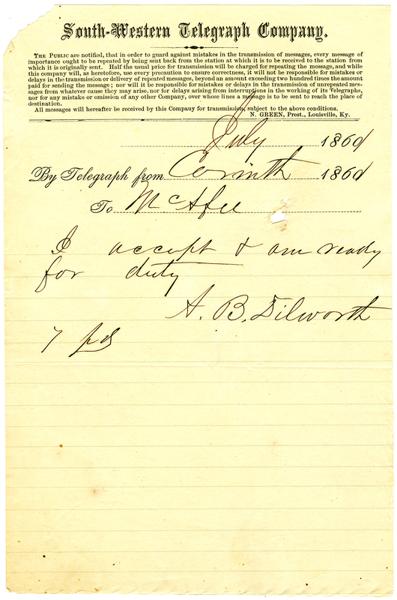 South-Western Telegraph Company.
THE PUBLIC are notified, that in order to guard against mistakes in the transmission of messages, every message of
importance ought to be repeated by being sent back from the station at which it is to be received to the station from
which it is originally sent. Half the usual price for transmission will be charged for repeating the message, and while
this company will, as heretofore, use every precaution to ensure correctness, it will not be responsible for mistakes or
delays in the transmission or delivery of repeated messages, beyond an amount exceeding two hundred times the amount
paid for sending the message; nor will it be responsible for mistakes or delays in the transmission of unrepeated mess-
ages from whatever cause they may arise, nor for delays arising from interruptions in the working of its Telegraphs,
nor for any mistake or omission of any other Company, over whose lines a message is to be sent to reach the place of
destination.
All messages will hereafter be received by this Company for transmission, subject to the above conditions.
N. GREEN, Prest., Louisville, Ky.
July 1861
By Telegraph from Corinth 1861
To McAfee
I accept & am ready
for duty
A. B. Dilworth
7 pd